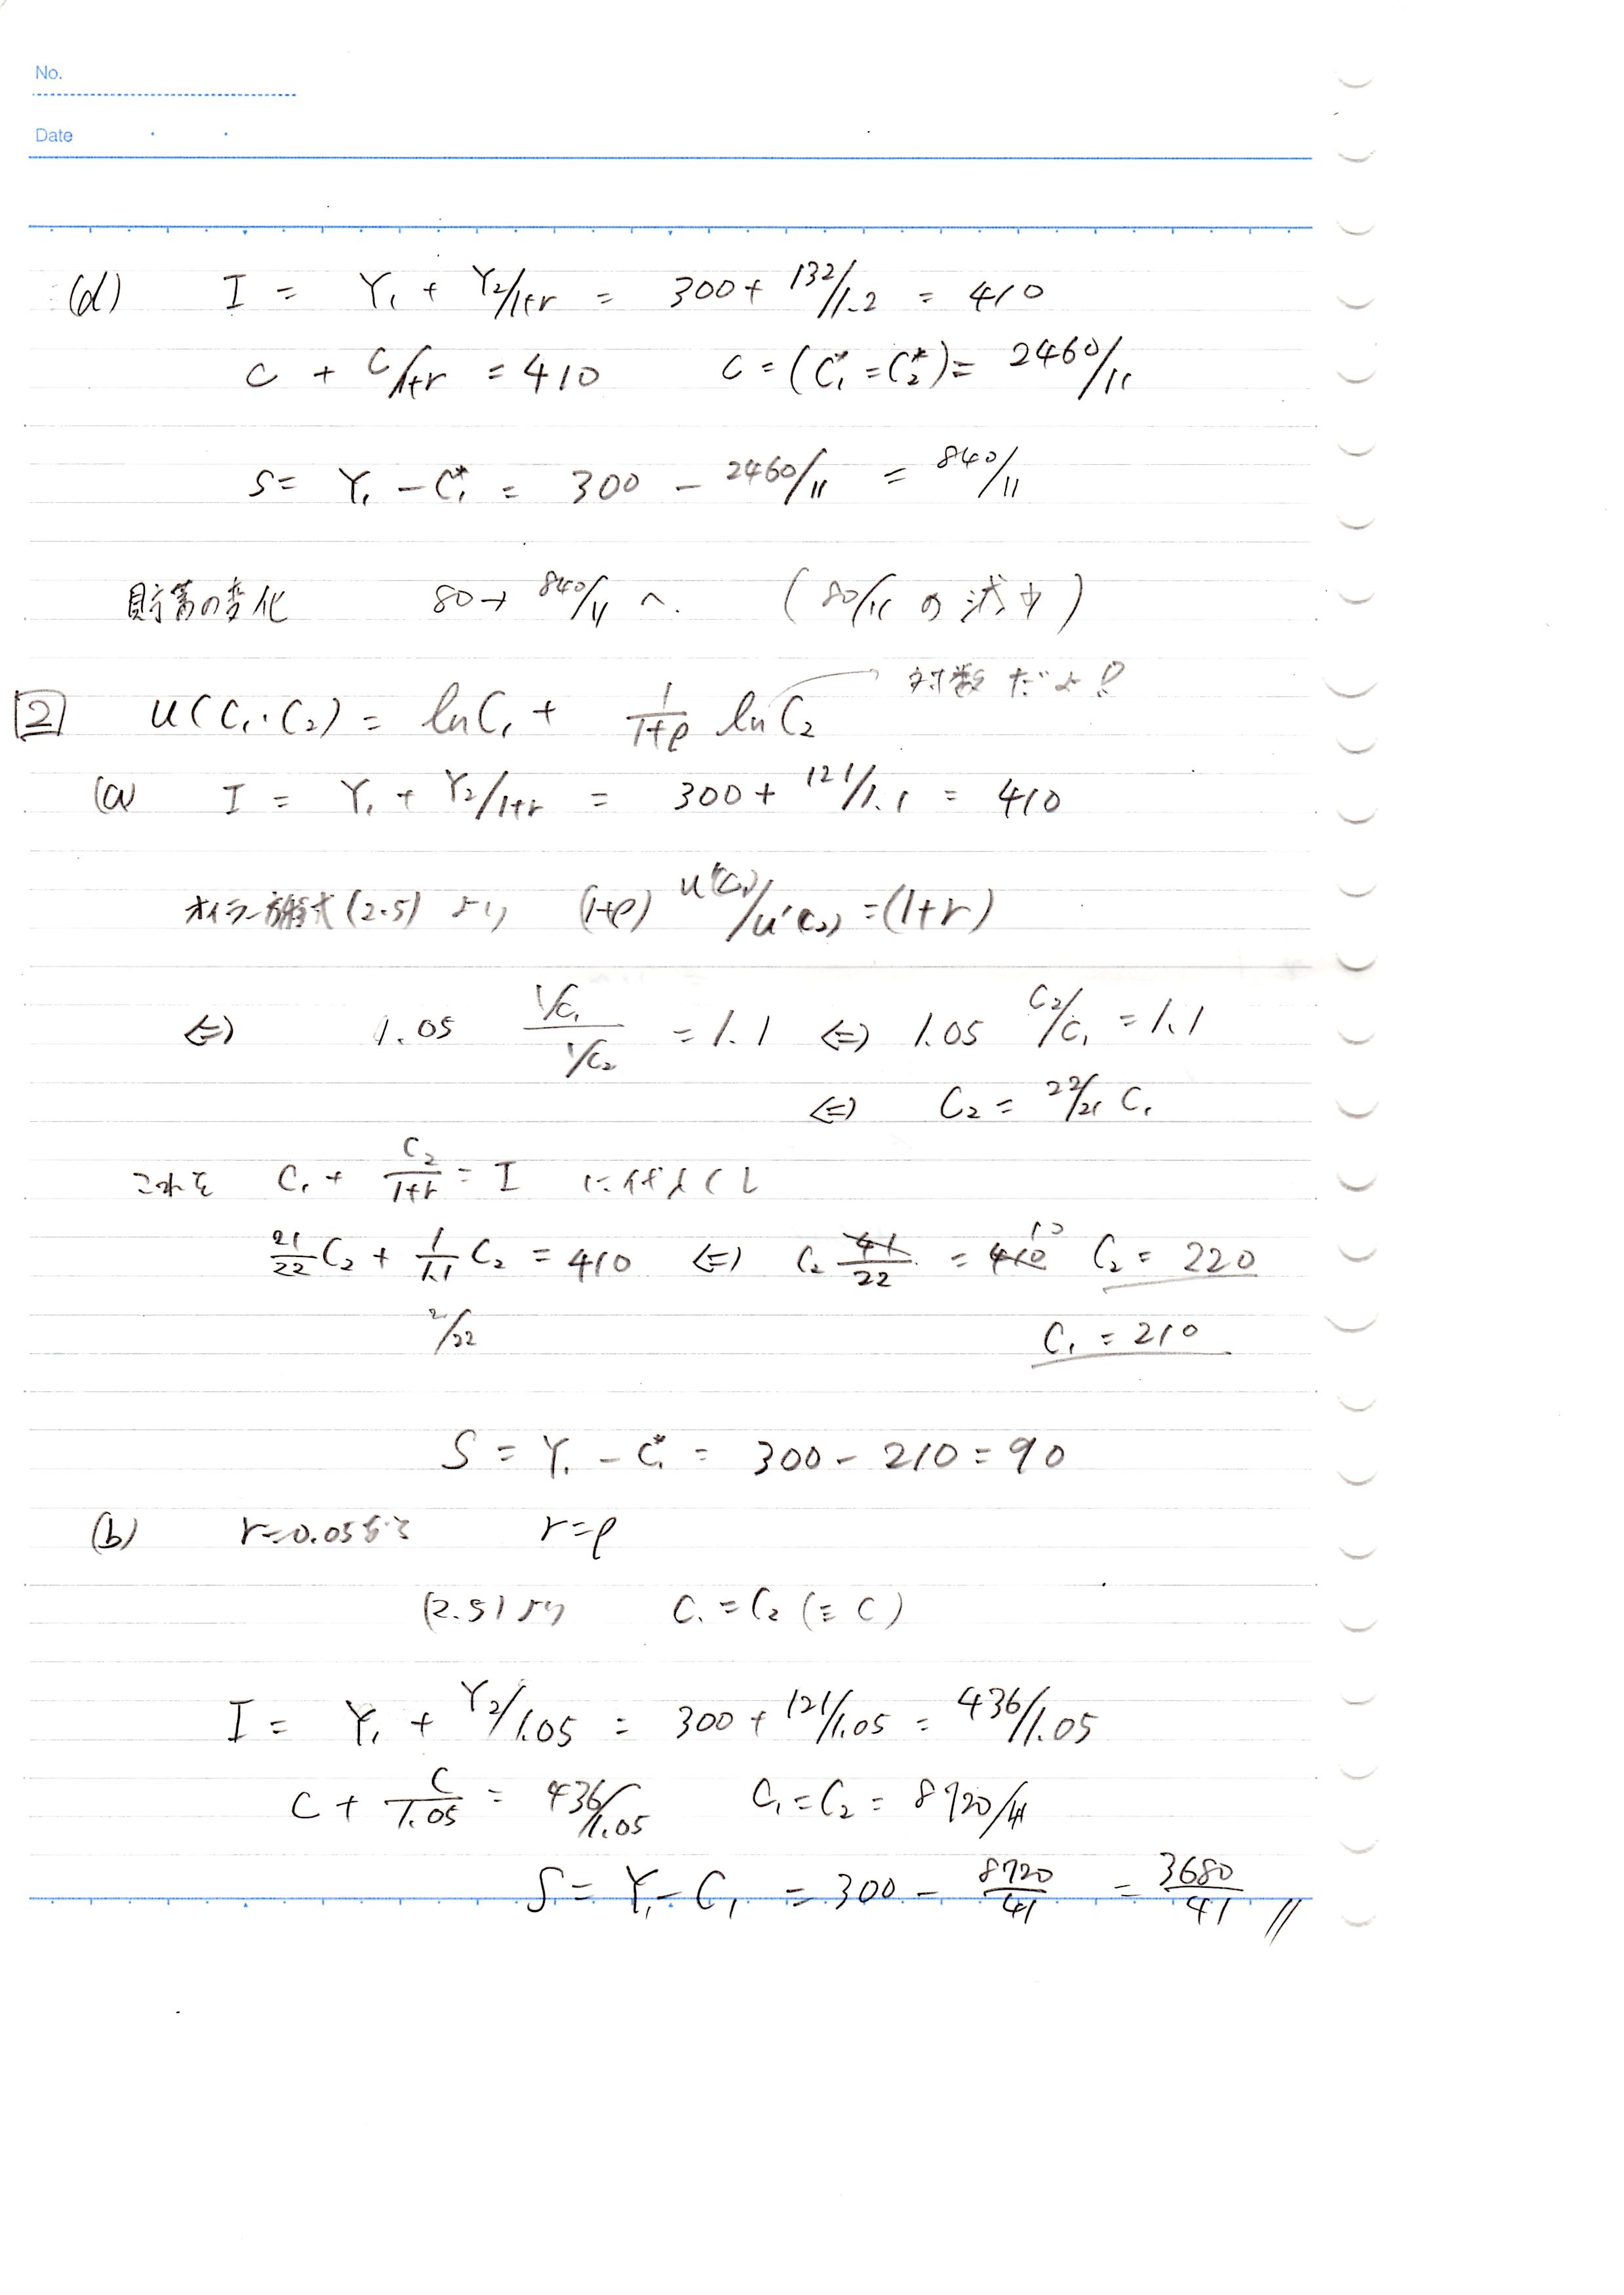 No.
Date
(d) I = Y₁ + Y₂/1+r = 300 + 132/1.2 = 410
C + C/1+r = 410 C = (C₁* = C₂*) = 2460/11
S = Y₁ - C₁* = 300 - 2460/11 = 840/11
貯蓄の変化 80→ 840/11 へ. (80/11 の減少)
2 U(C₁.C₂) = lnC₁ + 1/1+ρ lnC₂ → 対数だよ!
(a) I = Y₁ + Y₂/1+r = 300 + 121/1.1 = 410
オイラー方程式(2.5)より (1+ρ) u'(C₁)/u'(C₂) = (1+r)
⇔ 1.05 1/C₁ / 1/C₂ = 1.1 ⇔ 1.05 C₂/C₁ = 1.1
⇔ C₂ = 22/21 C₁
これを C₁ + C₂/1+r = I に代入して
21/22 C₂ + 1/1.1 C₂ = 410 ⇔ C₂ 41/22 = 410 10 C₂ = 220
2/22 C₁ = 210
S = Y₁ - C₁* = 300 - 210 = 90
(b) r=0.05より r=ρ
(2.5)より C₁ = C₂ (≡ C)
I = Y₁ + Y₂/1.05 = 300 + 121/1.05 = 436/1.05
C + C/1.05 = 436/1.05 C₁ = C₂ = 8720/41
S = Y₁ - C₁ = 300 - 8720/41 = 3680/41 //